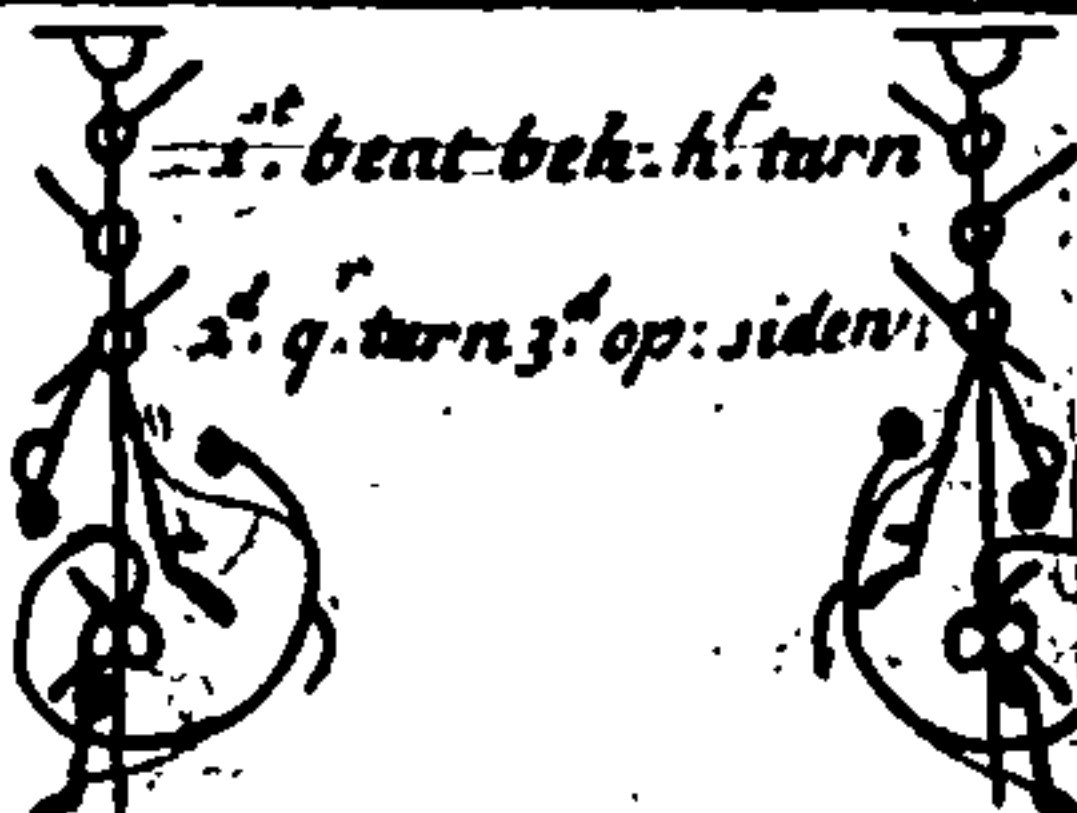 1.st beat beh: h.f turn
2.d q.r turn 3.d op: sidew: